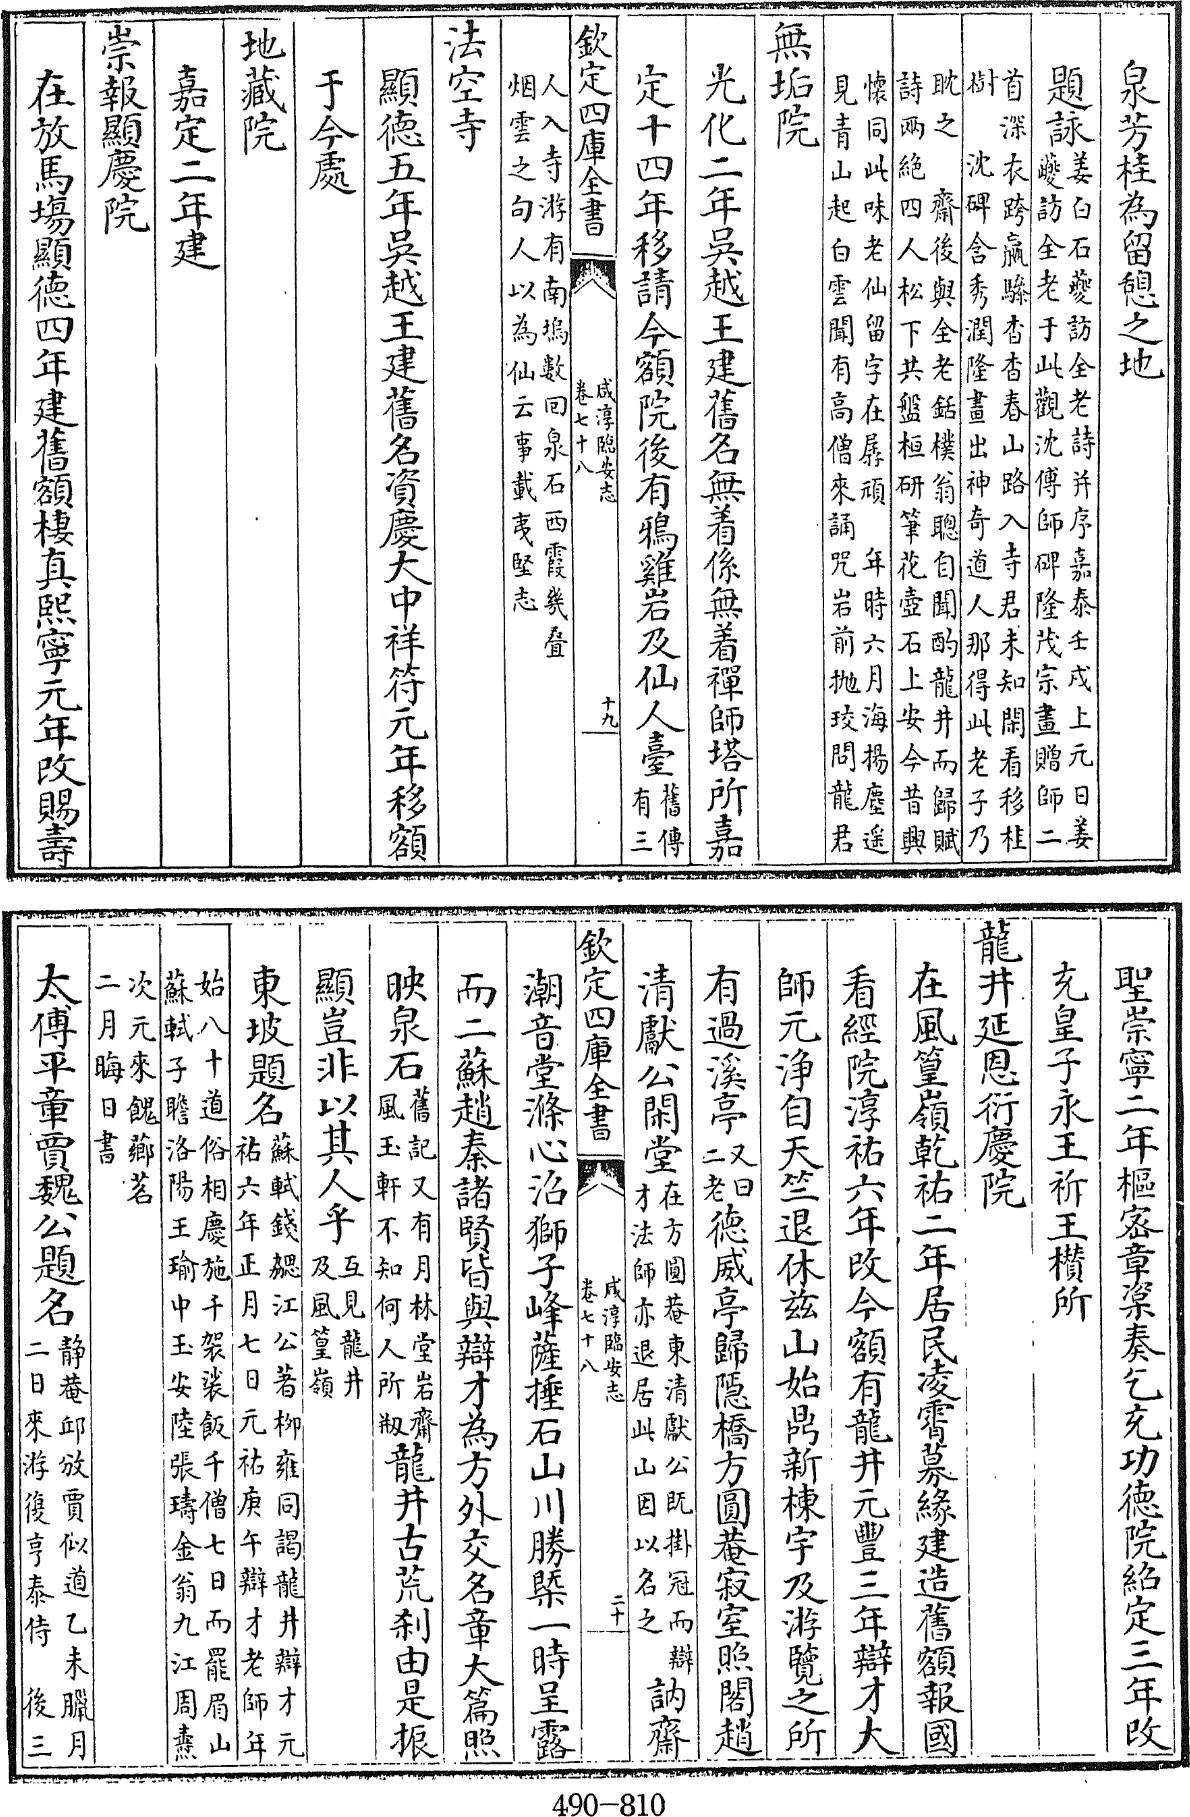 泉芳桂為留憩之地
題詠姜白石夔訪全老詩并序嘉泰壬戌上元日姜
夔訪全老于此觀沈傅師碑隆茂宗畫贈師二
首深衣跨羸驂杳杳春山路入寺君未知閑看移桂
樹　沈碑含秀潤隆畫出神奇道人那得此老子乃
耽之　齋後與全老銛樸翁聰自聞酌龍井而歸賦
詩兩絕四人松下共盤桓研筆花壺石上安今昔興
懷同此味老仙留字在孱顽　年時六月海揚塵遥
見青山起白雲聞有高僧來誦咒岩前抛珓問龍君
無垢院
光化二年吳越王建舊名無着係無着禪師塔所嘉
定十四年移請今額院後有鴉雞岩及仙人臺舊傳
有三
欽定四庫全書
咸淳臨安志
卷七十八
十九
人入寺游有南塢數回泉石西霞幾叠
烟雲之句人以為仙云事載夷堅志
法空寺
顯德五年吳越王建舊名資慶大中祥符元年移額
于今處
地藏院
嘉定二年建
崇報顯慶院
在放馬塲顯德四年建舊額棲真熙寧元年改賜壽
聖崇寧二年樞宻章楶奏乞充功德院紹定三年改
充皇子永王祈王櫕所
龍井延恩衍慶院
在風篁嶺乾祐二年居民凌霄募緣建造舊額報國
看經院淳祐六年改今額有龍井元豐三年辯才大
師元淨自天竺退休兹山始鼎新棟宇及游覽之所
有過溪亭又曰
二老德威亭歸隱橋方圓菴寂室照閣趙
清獻公閑堂在方圓菴東清獻公既掛冠而辯
才法師亦退居此山因以名之訥齋
欽定四庫全書
咸淳臨安志
卷七十八
二十
潮音堂滌心沼獅子峰薩埵石山川勝槩一時呈露
而二蘇趙秦諸賢皆與辯才為方外交名章大篇照
映泉石舊記又有月林堂岩齋
風玉軒不知何人所剏龍井古荒刹由是振
顯豈非以其人乎互見龍井
及風篁嶺
東坡題名蘇軾錢勰江公著柳雍同謁龍井辯才元
祐六年正月七日元祐庚午辯才老師年
始八十道俗相慶施千袈裟飯千僧七日而罷眉山
蘇軾子瞻洛陽王瑜中玉安陸張璹金翁九江周燾
次元來餽薌茗
二月晦日書
太傅平章賈魏公題名静菴邱放賈似道乙未臘月
二日來游復亨泰侍　後三
490-810